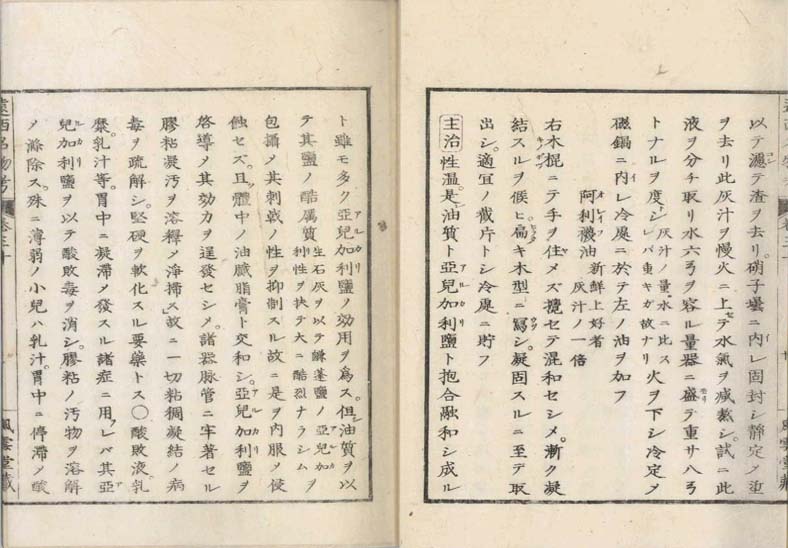 以テ濾テ渣ヲ去リ。硝子壜ニ内レ固封シ静定メ
ヲ去リ此灰汁ヲ慢火ニ上セテ水氣ヲ減裁シ。試ニ此
液ヲ分チ取リ水六弓ヲ容ル量器ニ盛テ重サ八弓
トナルヲ度トシ 灰汁ノ量水ニ比スレバ重キガ故ナリ 火ヲ下シ冷定メ
磁鍋ニ内レ冷處ニ於テ左ノ油ヲ加フ
阿利襪油 新鮮上好者 灰汁ノ一倍
右木棍ニテ手ヲ住メズ攪セテ混和セシメ。漸ク凝
結スルヲ候ヒ扁キ木型ニ寫シ。凝固スルニ至テ取
出シ。適宜ノ截片トシ冷處ニ貯フ
主治 性温。是油質ト亞兒加利鹽ト抱合融和シ成ル
ト雖モ多ク亞兒加利鹽ノ効用ヲ爲ス。但油質ヲ以
テ其鹽ノ酷厲質 生石灰ヲ以テ鎌蓬鹽ノ亞兒加利性ヲ挾テ大ニ酷烈ナラシムヲ
包攝メ其刺戟ノ性ヲ抑制スル故ニ是ヲ内服メ侵
蝕セズ。且體中ノ油臓脂膏ト交和シ。亞兒加利鹽ヲ
啓導メ其効力ヲ逞發セシメ。諸器脉管ニ牢著セル
膠粘凝汚ヲ溶釋メ淨掃ス故ニ一切粘稠凝結ノ病
毒ヲ疏解シ。堅硬ヲ軟化スル要藥トス〇酸敗液。乳
糜。乳汁等。胃中ニ凝滞メ發スル諸症ニ用レバ其亞
兒加利鹽ヲ以テ酸敗毒ヲ消シ。膠粘ノ汚物ヲ溶解
メ滌除ス。殊ニ薄弱ノ小兒ハ乳汁。胃中ニ停滞メ酸
遠西名物考 卷三十
風雲堂藏